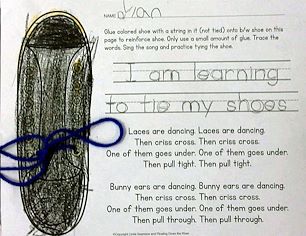 NAME Alan
Glue colored shoe with a string in it (not tied) onto b/w shoe on this
page to reinforce shoe. Only use a small amount of glue. Trace the
words. Sing the song and practice tying the shoe.
I am learning
to tie my shoes
Laces are dancing. Laces are dancing.
Then criss cross. Then criss cross.
One of them goes under. One of them goes under.
Then pull tight. Then pull tight.
Bunny ears are dancing. Bunny ears are dancing.
Then criss cross. Then criss cross.
One of them goes under. One of them goes under.
Then pull through. Then pull through.